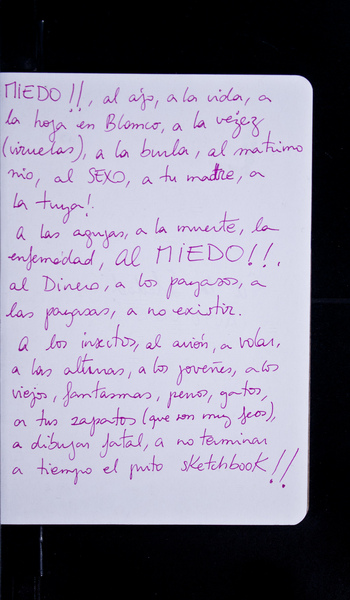 MIEDO!!, al ajo, a la vida, a
la hoja en Blanco, a la vejez
(viruelas), a la burla, al matrimo
nio, al SEXO, a tu madre, a
la tuya!
A las agujas, a la muerte, la
enfermedad, Al MIEDO!!.
al Dinero, a los payasos, a
las payasas, a no existir.
A los insectos, al avión, a volar,
a las alturas, a los jóvenes, a los
viejos, fantasmas, perros, gatos,
a tus zapatos (que son muy feos),
a dibujar fatal, a no terminar
a tiempo el puto sketchbook!!